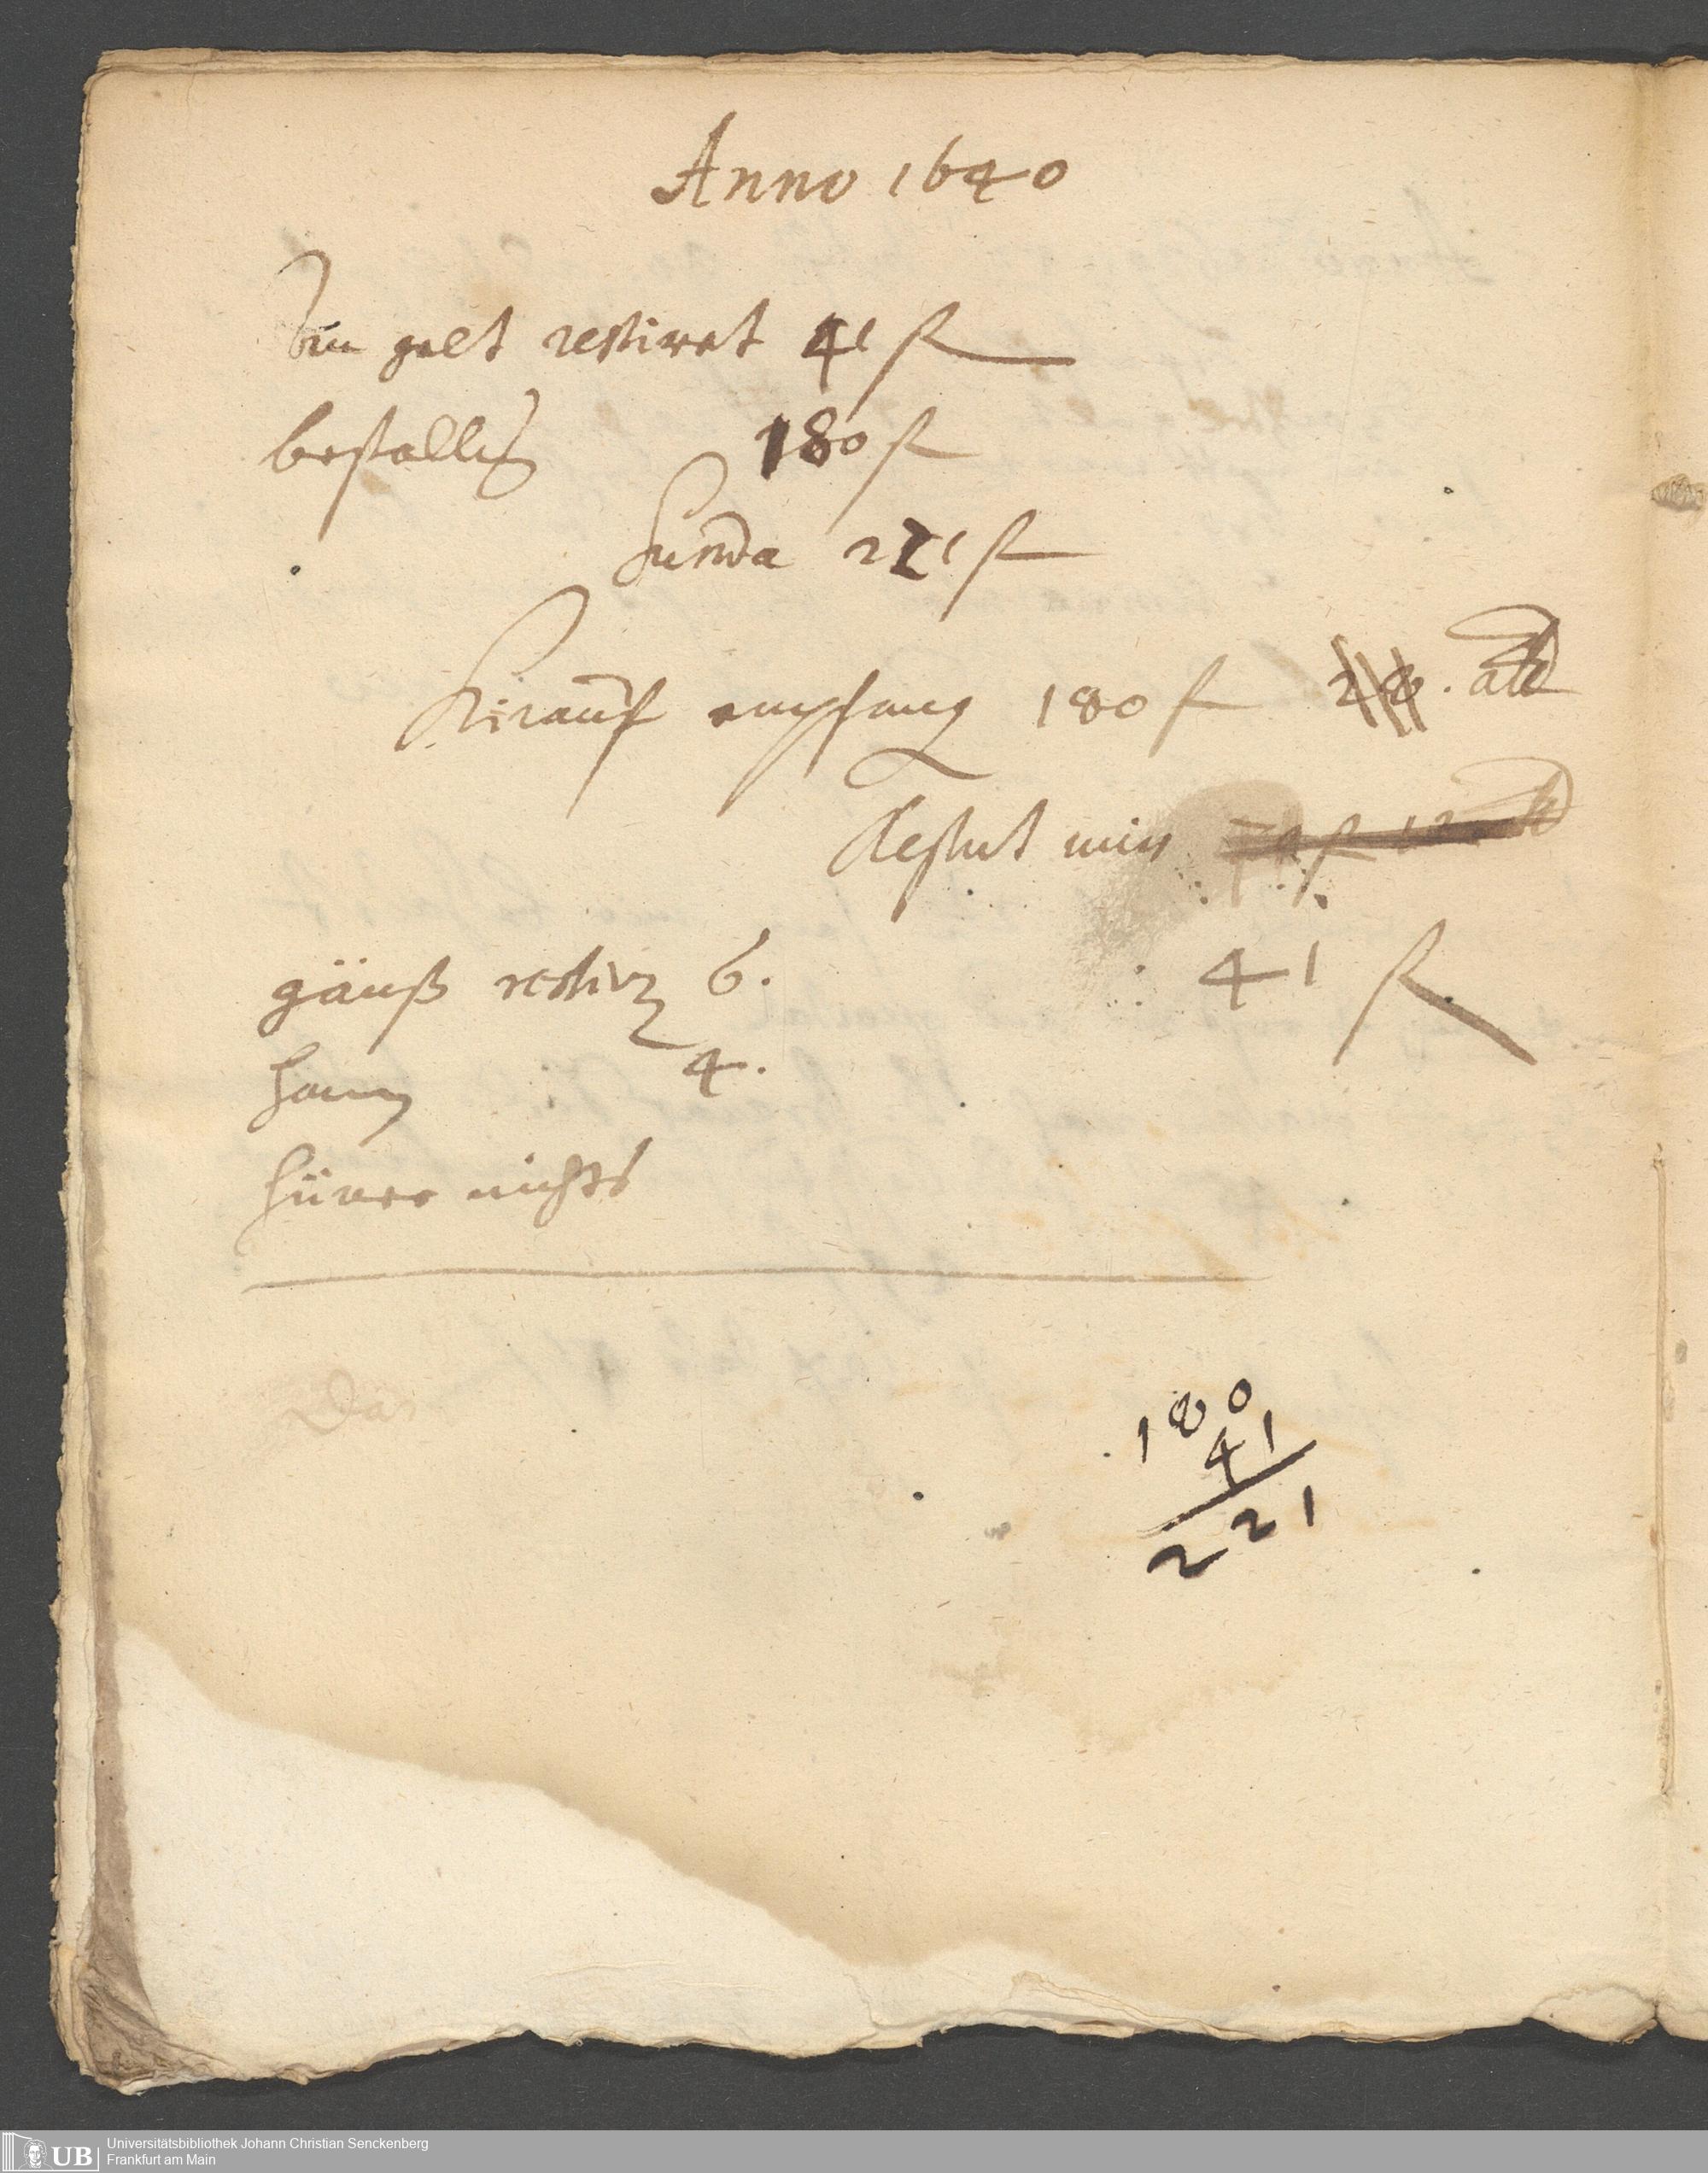 Anno 1640
An gelt restiret 41 fl
bestallung 180 fl
Suma 221 fl
Hirauf empfang 180 fl
Restirt mir
gänß restirn 6.
41 fl
hanen 4.
hüner nichts
Das
180
41
221
UB Universitätsbibliothek Johann Christian Senckenberg
Frankfurt am Main